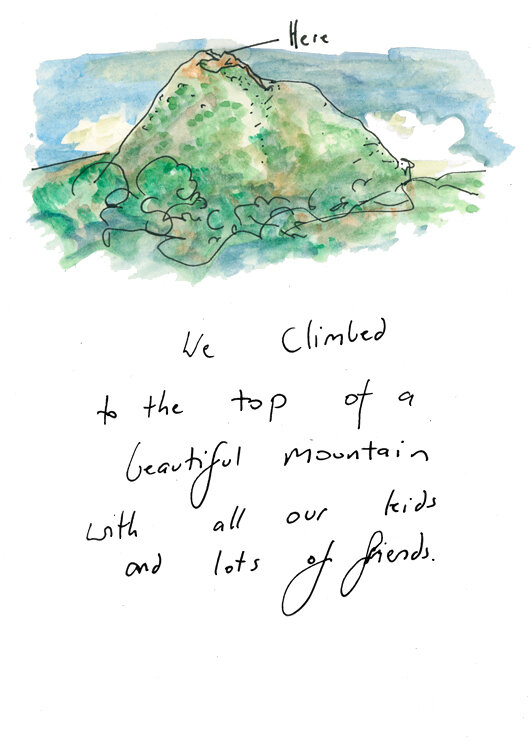 Here
We Climbed
to the top of a
beautiful mountain
with all our kids
and lots of friends.